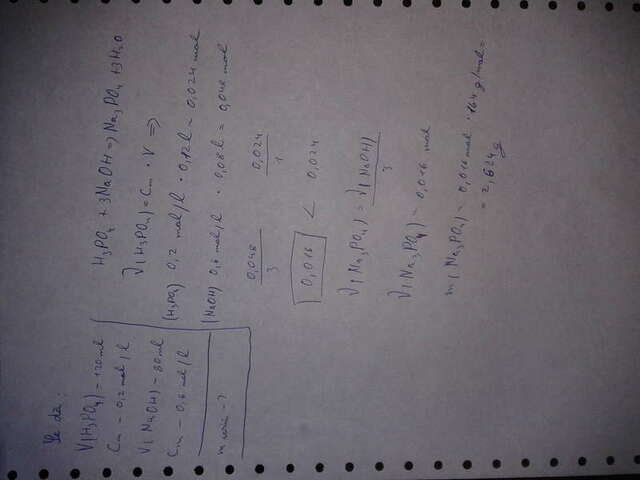 Se dă:
V(H3PO4) = 120 ml
Cm - 0,2 mol/l
V(NaOH) - 80 ml
Cm - 0,6 mol/l
m - ?
H3PO4 + 3NaOH => Na3PO4 + 3H2O
ν(H3PO4) = Cm · V =>
(H3PO4) 0,2 mol/l · 0,12l = 0,024 mol
(NaOH) 0,6 mol/l · 0,08l = 0,048 mol
0,048/3 0,024/1
0,016 < 0,024
ν(Na3PO4) = ν(NaOH)/3
ν(Na3PO4) = 0,016 mol
m(Na3PO4) = 0,016 mol · 164 g/mol =
= 2,624g